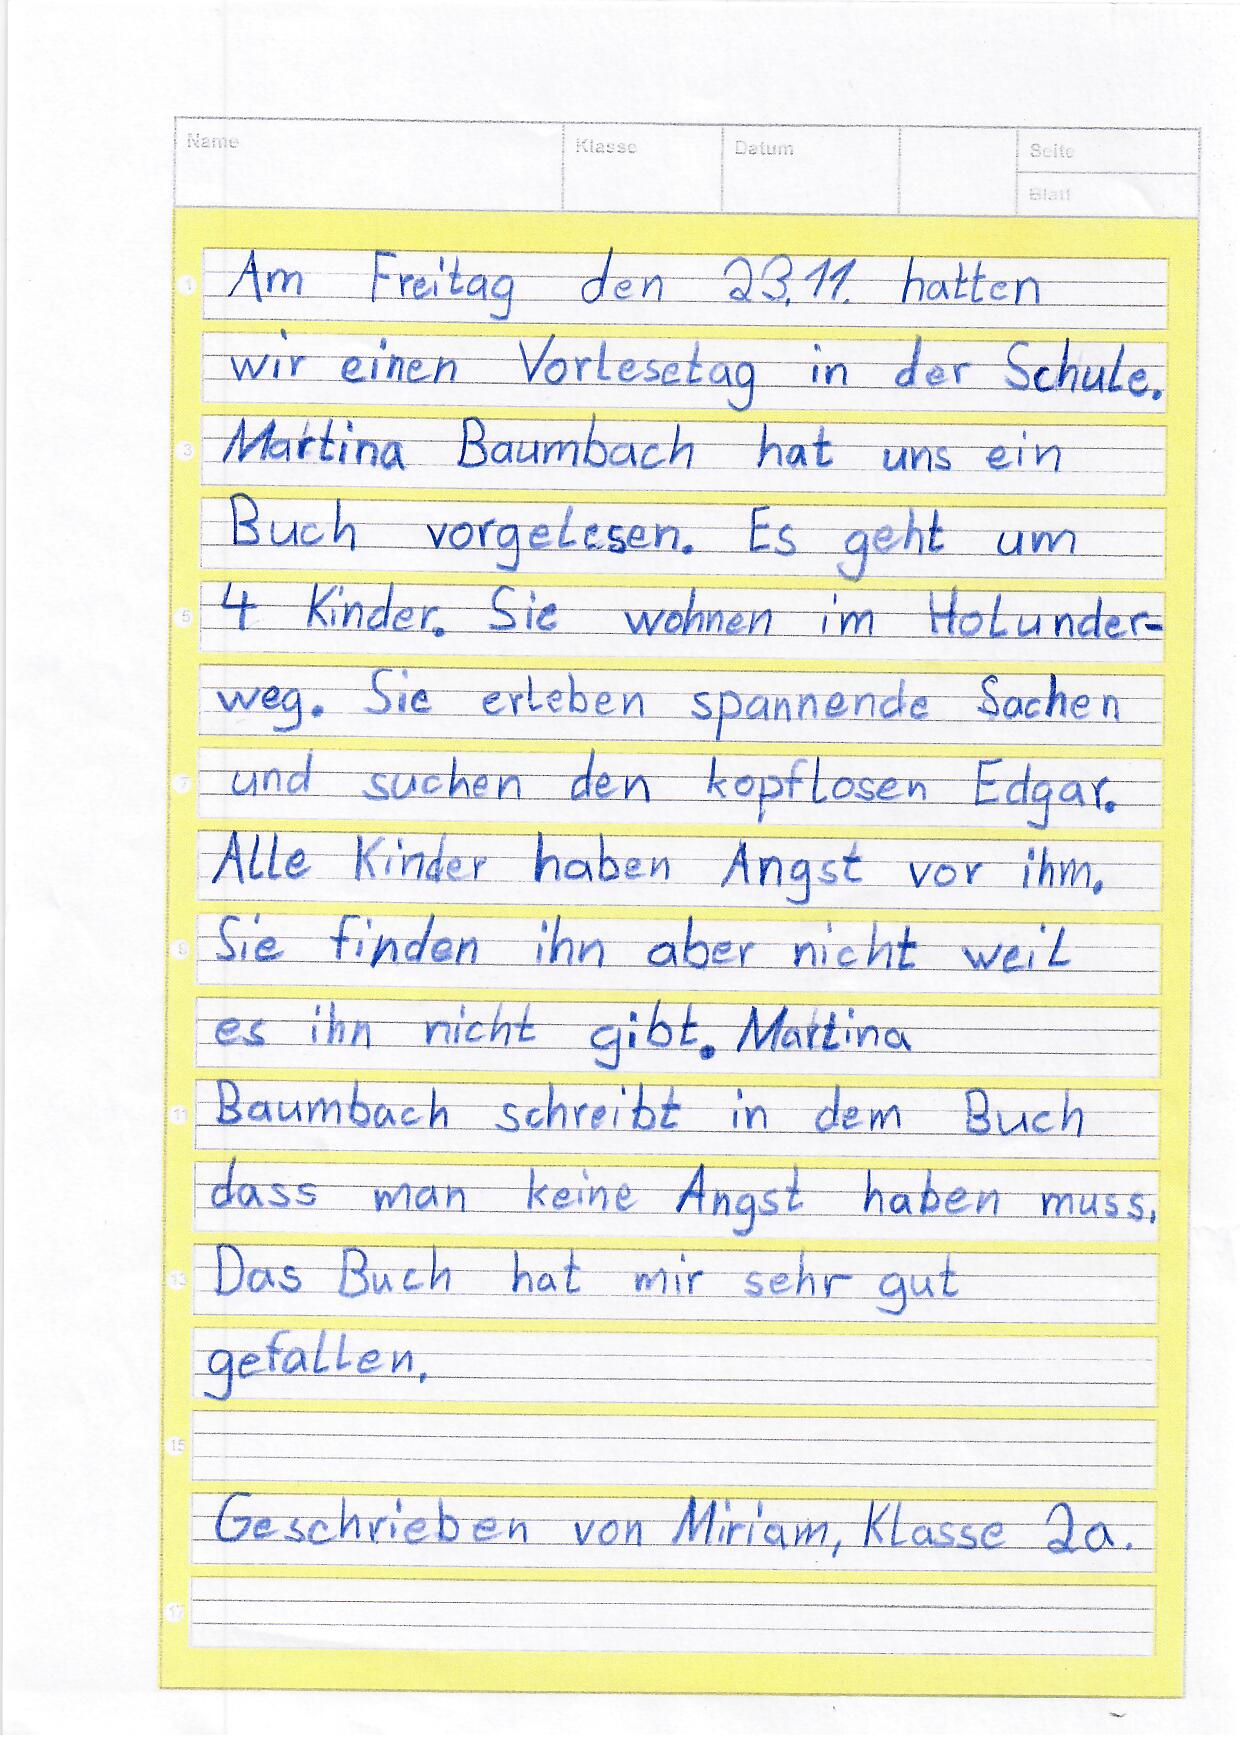 Name Klasse Datum Seite
Blatt
1 Am Freitag den 23.11. hatten
wir einen Vorlesetag in der Schule.
3 Martina Baumbach hat uns ein
Buch vorgelesen. Es geht um
5 4 Kinder. Sie wohnen im Holunder-
weg. Sie erleben spannende Sachen
7 und suchen den kopflosen Edgar.
Alle Kinder haben Angst vor ihm.
9 Sie finden ihn aber nicht weil
es ihn nicht gibt. Martina
11 Baumbach schreibt in dem Buch
dass man keine Angst haben muss.
13 Das Buch hat mir sehr gut
gefallen.
15
Geschrieben von Miriam, Klasse 2a.
17